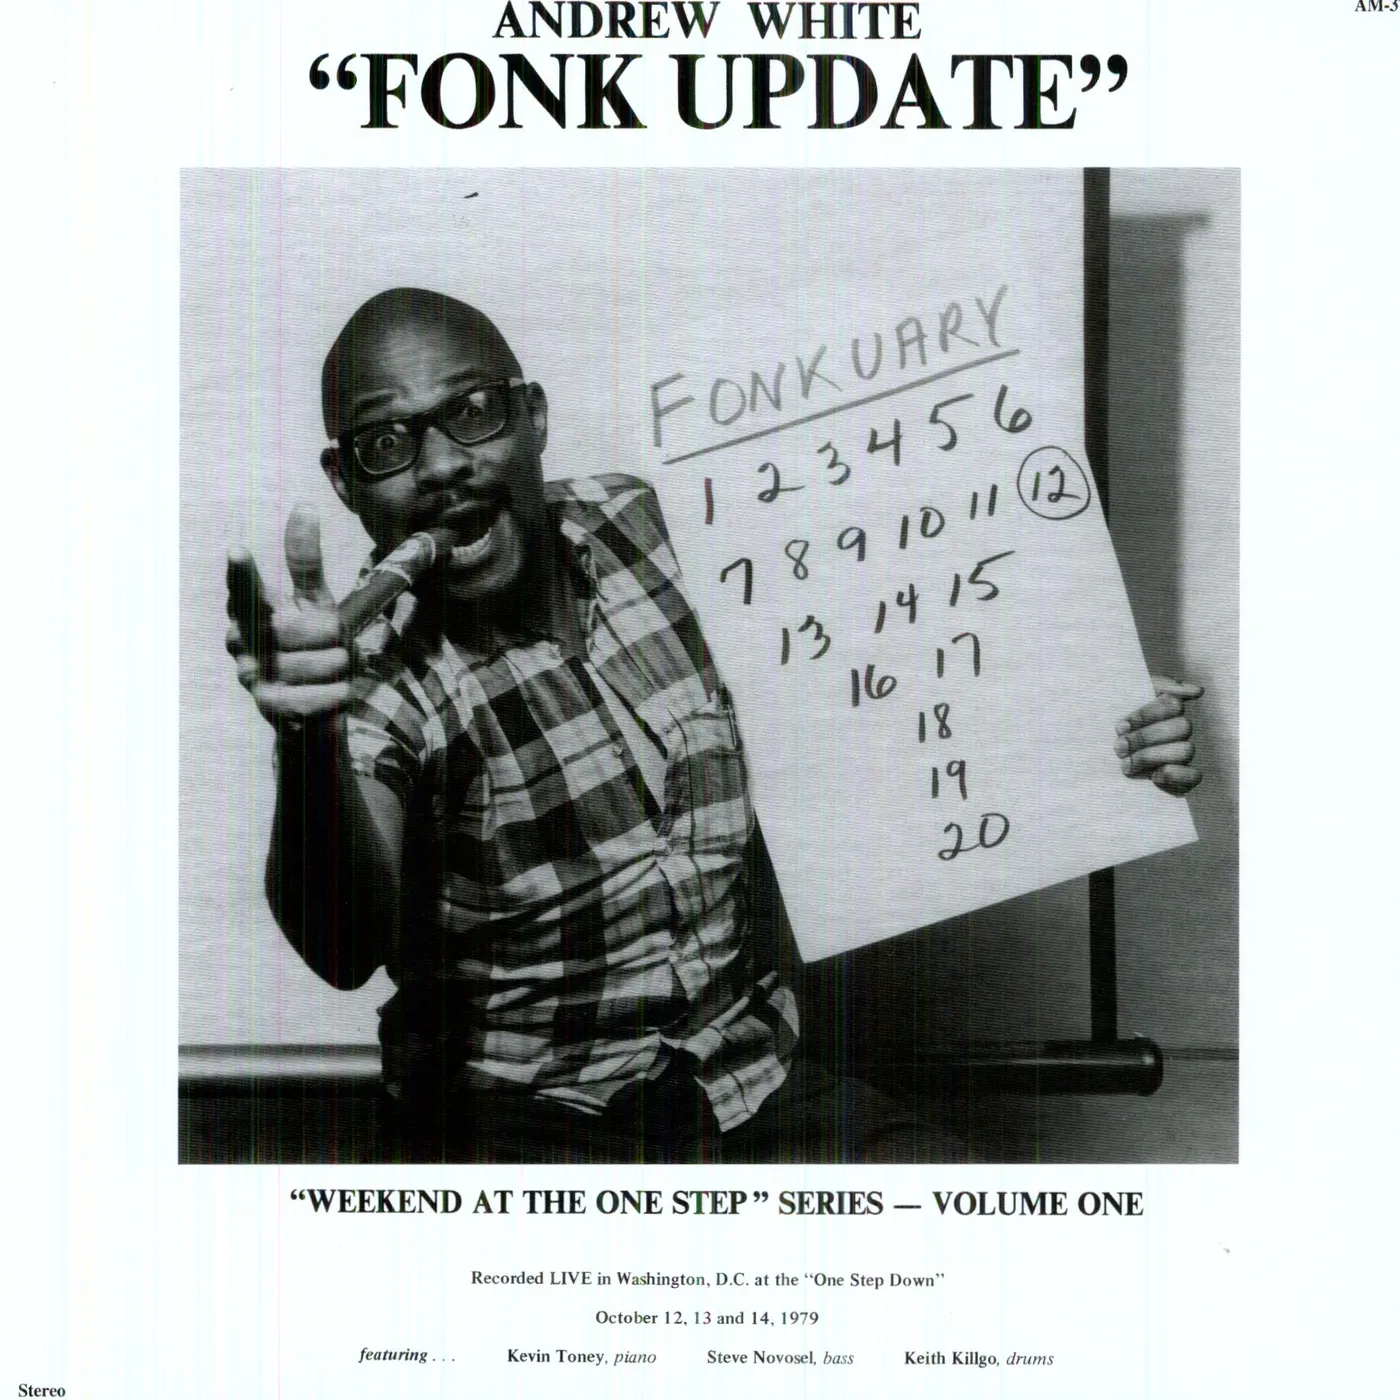 AM-3
ANDREW WHITE
“FONK UPDATE”
FONKUARY
1 2 3 4 5 6
7 8 9 10 11 12
13 14 15
16 17
18
19
20
“WEEKEND AT THE ONE STEP” SERIES — VOLUME ONE
Recorded LIVE in Washington, D.C. at the “One Step Down”
October 12, 13 and 14, 1979
featuring . . . Kevin Toney, piano Steve Novosel, bass Keith Killgo, drums
Stereo